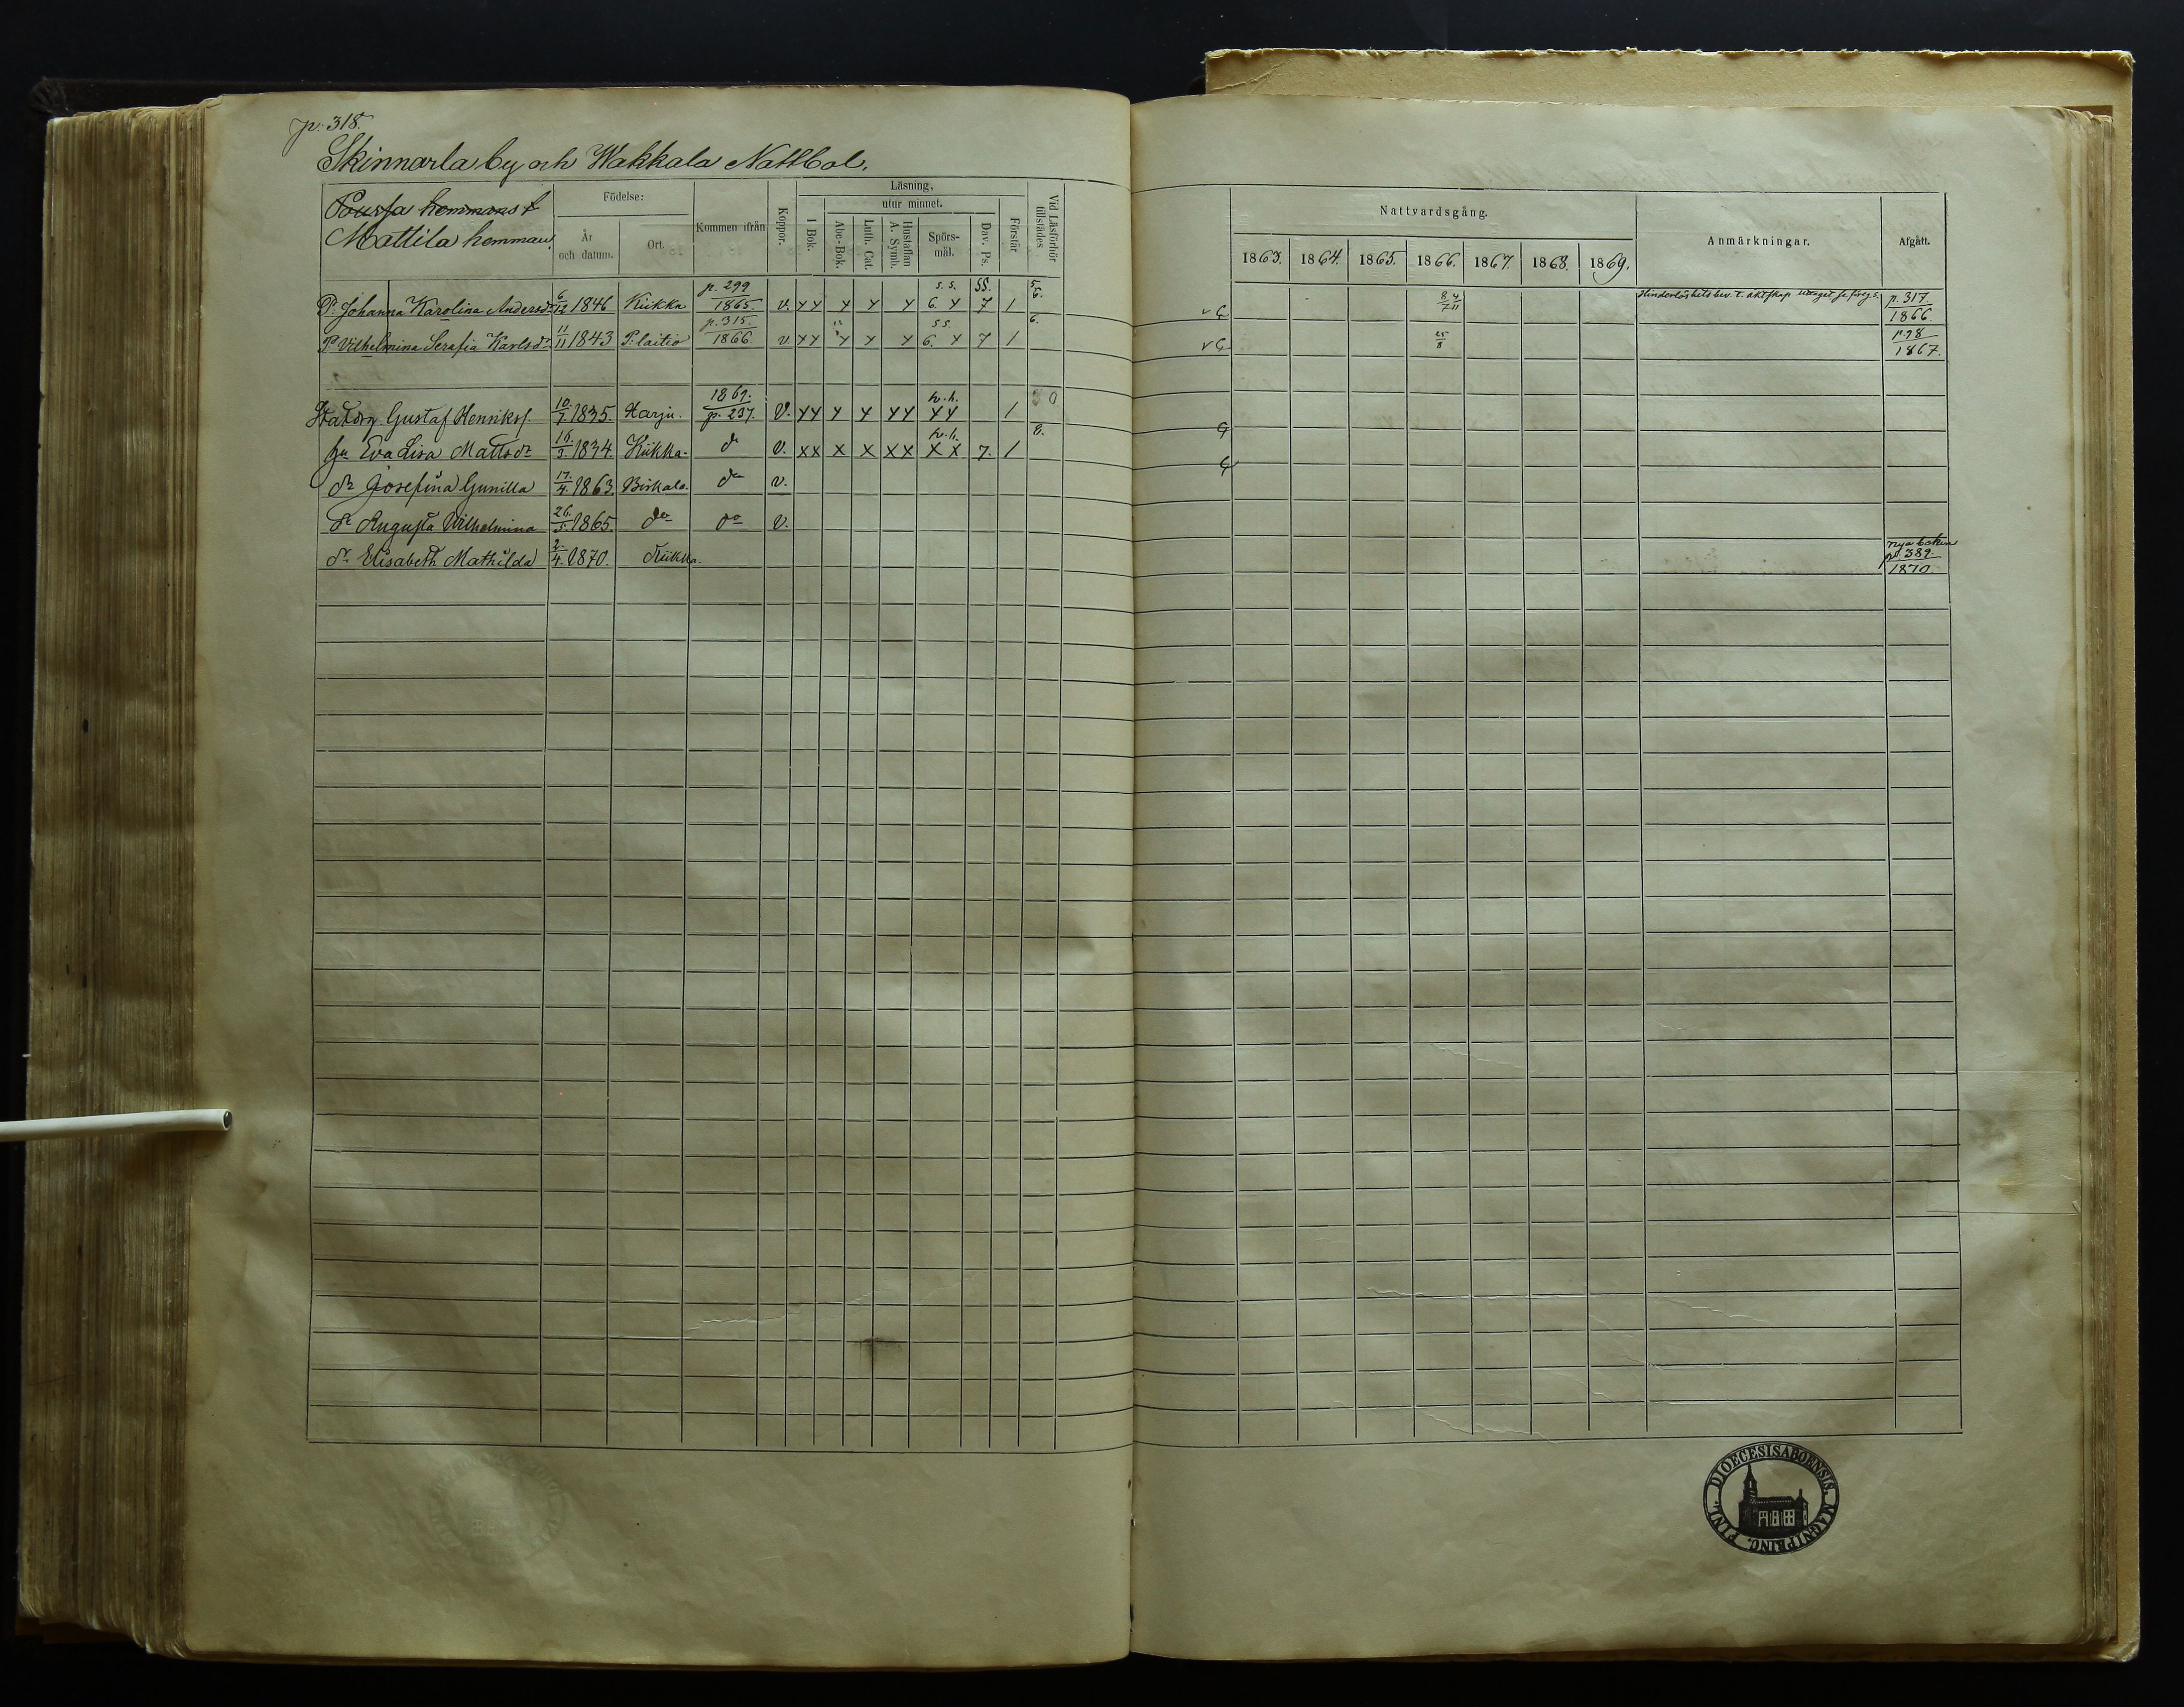 p. 318.
Skinnarla by och Wakkala Nattbol.
Mattila hemman.
Födelse:
År och datum.
Ort.
Kommen ifrån
Koppor.
Läsning.
utur minnet.
I Bok.
Abc-Bok.
Luth. Cat.
Hustaflan A. Symb.
Spörs-mål.
Dav. Ps.
Förstår
Vid Läsförhör tillstädes
Nattvardsgång.
1863. 1864. 1865. 1866. 1867. 1868. 1869.
Anmärkningar.
Afgått.
P. Johanna Karolina Andersdr 6/12 1846 Kiikka p. 299 1865. v. x x x x x s.s. 6. x SS. 7 1 5. 6. v G 8/7 4/11 p. 317 1866
P. Vilhelmina Serafia Karlsdr 11/11 1843 P. laitio p. 315. 1866. v x x x x x s.s. 6. x 7 1 6. v G 25/8 p 98 1867.
Gustaf Henrikss. 10/7. 1835. Harju. 1869. p. 237. V. x x x x x x h.h. x x 1 0 G
hu Eva Lisa Mattsdr 16/3. 1834. Kiikka. do V. x x x x x x h.h. x x 7. 1 8. G
dr Josefina Gunilla 17/4. 1863. Birkala. do v.
dr Augusta Wilhelmina 26/5. 1865. do do v.
dr Elisabeth Mathilda 2/4. 1870. Kiikka. nya boken p. 389. 1870.
FINL. DIOECESIS ABOENSIS. MAGNI PRINC.